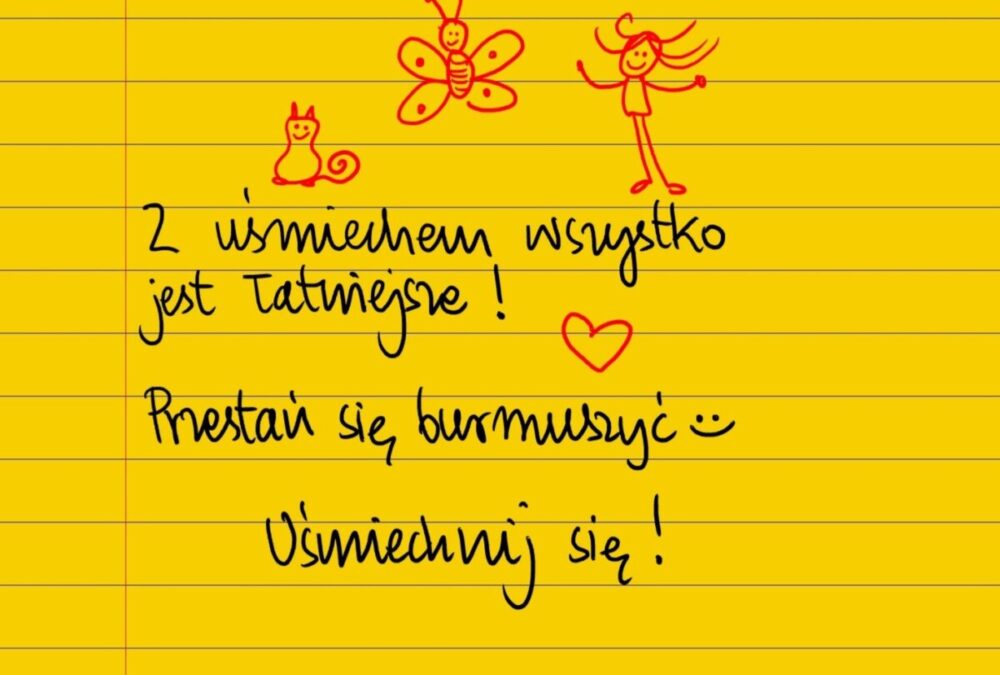 Z uśmiechem wszystko
jest łatwiejsze!
Przestań się burmuszyć :)
Uśmiechnij się!